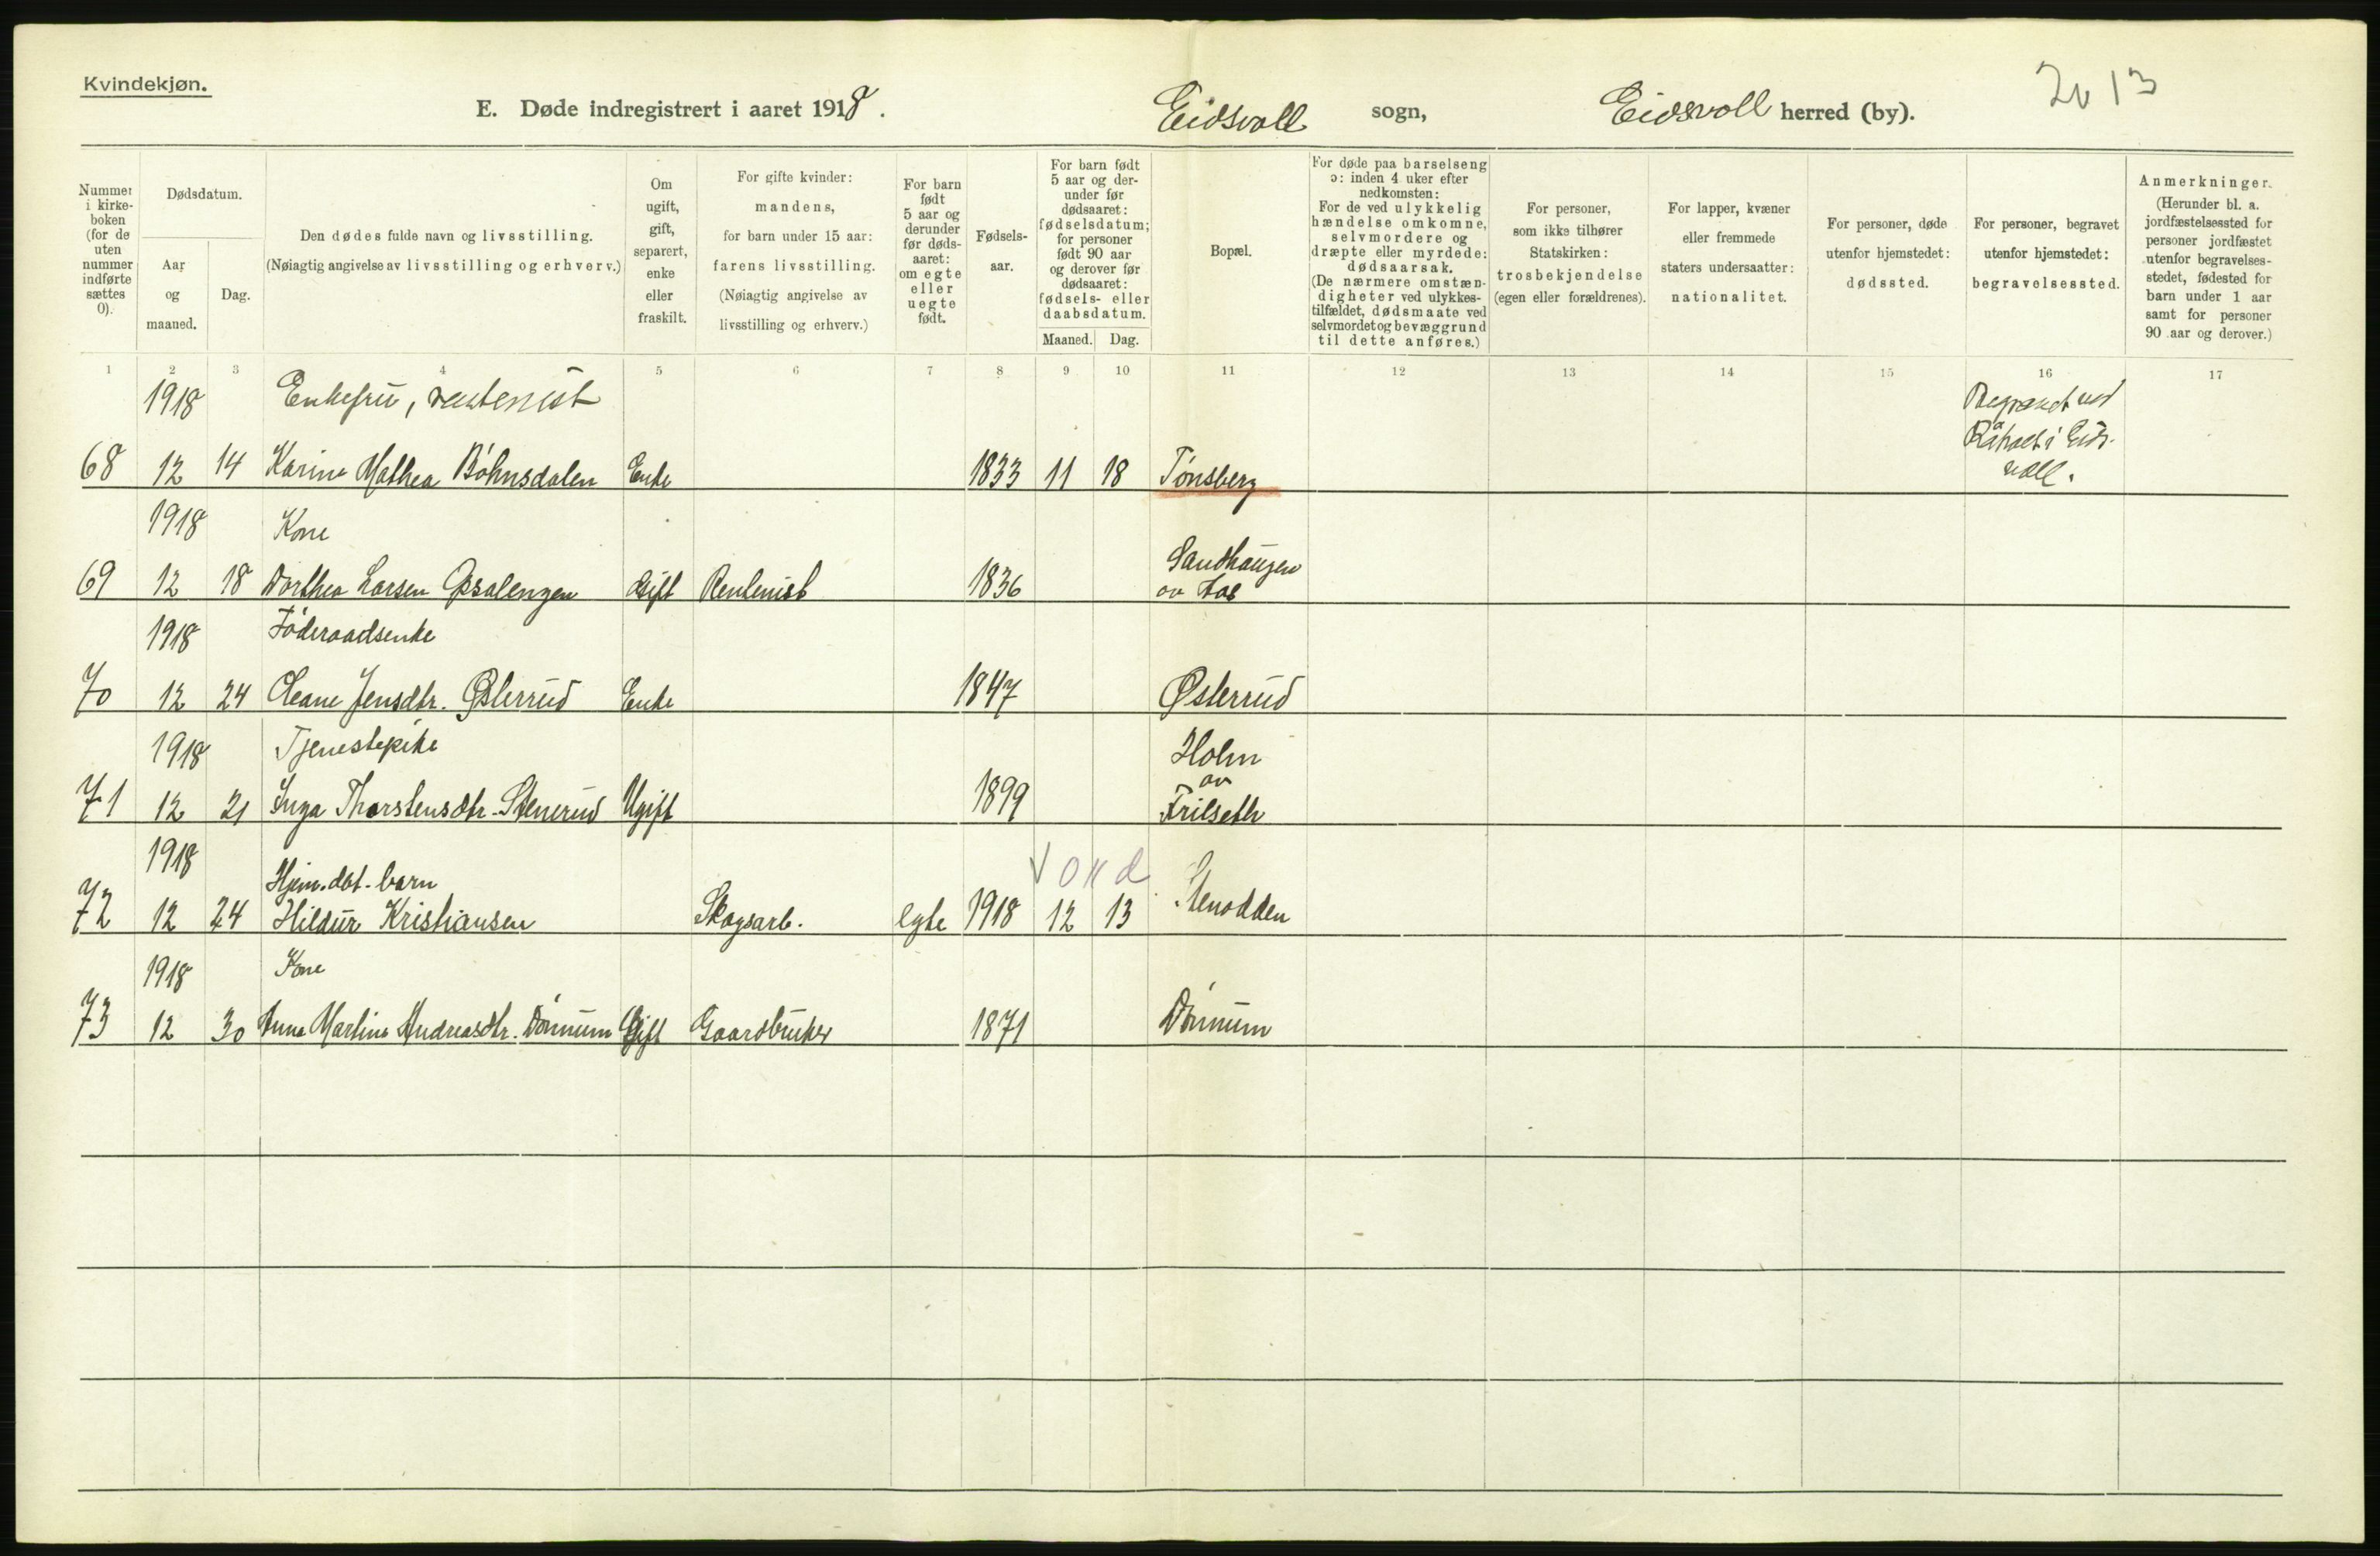 Kvindekjøn.
E. Døde indregistrert i aaret 1918. Eidsvoll sogn, Eidsvoll herred (by). 2 13
Nummer i kirkeboken (for de uten nummer indførte sættes 0).
Dødsdatum.
Aar og maaned.
Dag.
Den dødes fulde navn og livsstilling.
(Nøiagtig angivelse av livsstilling og erhverv.)
Om ugift, gift, separert, enke eller fraskilt.
For gifte kvinder: mandens,
for barn under 15 aar: farens livsstilling.
(Nøiagtig angivelse av livsstilling og erhverv.)
For barn født 5 aar og derunder før dødsaaret: om egte eller uegte født.
Fødselsaar.
For barn født 5 aar og derunder før dødsaaret: fødselsdatum; for personer født 90 aar og derover før dødsaaret: fødsels- eller daabsdatum.
Maaned. Dag.
Bopæl.
For døde paa barselseng ɔ: inden 4 uker efter nedkomsten:
For de ved ulykkelig hændelse omkomne, selvmordere og dræpte eller myrdede: dødsaarsak.
(De nærmere omstændigheter ved ulykkestilfældet, dødsmaate ved selvmordet og bevæggrund til dette anføres.)
For personer, som ikke tilhører Statskirken: trosbekjendelse (egen eller forældrenes).
For lapper, kvæner eller fremmede staters undersaatter: nationalitet.
For personer, døde utenfor hjemstedet: dødssted.
For personer, begravet utenfor hjemstedet: begravelsessted.
Anmerkninger.
(Herunder bl. a. jordfæstelsessted for personer jordfæstet utenfor begravelsesstedet, fødested for barn under 1 aar samt for personer 90 aar og derover.)
1 2 3 4 5 6 7 8 9 10 11 12 13 14 15 16 17
1918 Enkefru, rentenist Begravet ved
Råholt i Eids-
voll.
68 12 14 Karine Mathea Bøhnsdalen Enke 1833 11 18 Tønsberg
1918 Kone Sandhaugen
69 12 18 Dorthea Larsen Opsalengen Gift Rentenist 1836 av Aas
1918 Føderaadsenke
70 12 24 Oleane Jensdtr. Østerrud Enke 1847 Østerrud
1918 Tjenestepike Holm
av
71 12 21 Inga Thorstensdtr. Stenerud Ugift 1899 Trilseth
1918 Hjem.døt. barn
72 12 24 Hildur Kristiansen Skogsarb. egte 1918 12 13 Stenodden
1918 Kone
73 12 30 Anna Martine Andreasdtr. Dønnum Gift Gaardbruker 1871 Dønnum